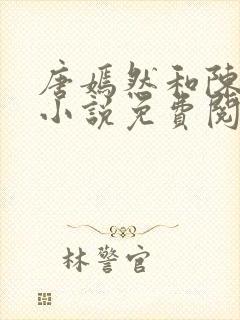 唐嫣然和陳
小說免費閱
林警官